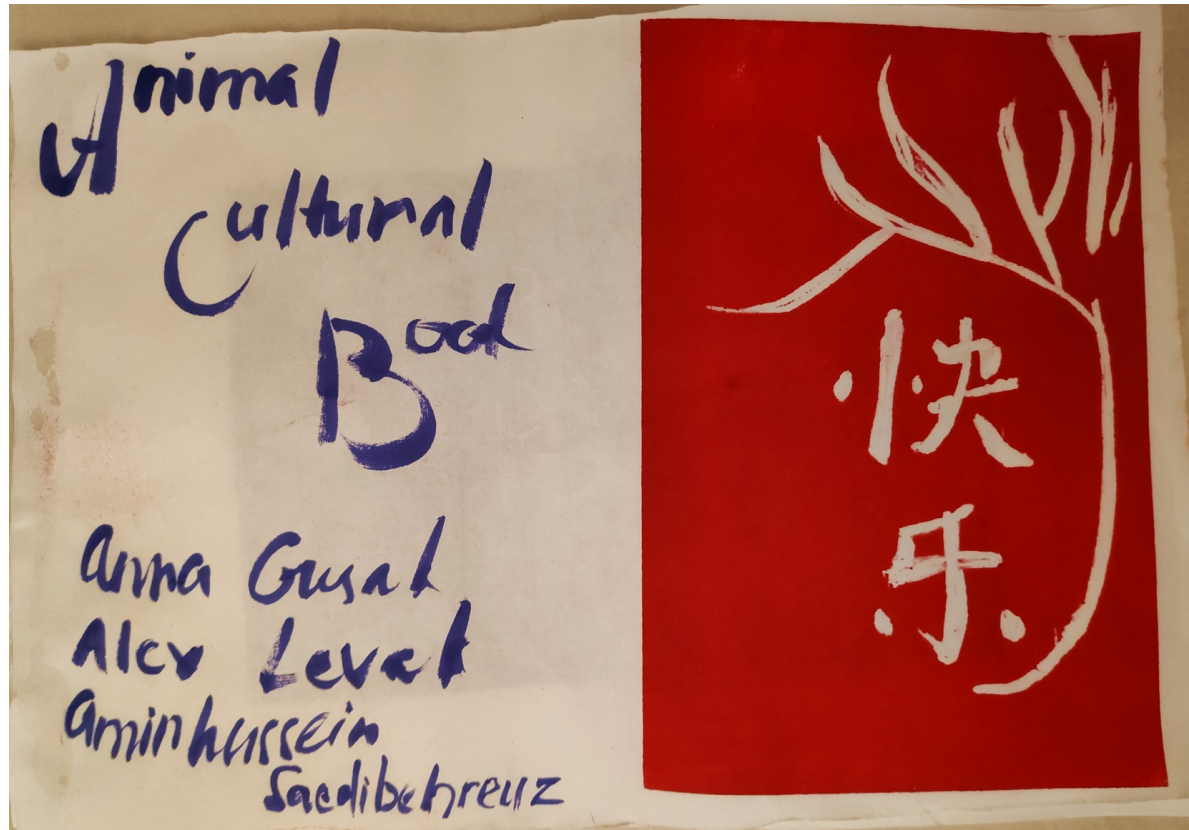 Animal
Cultural
Book
Anna Gusak
Alex Levak
Aminhussein
Saedibehrouz
快
乐